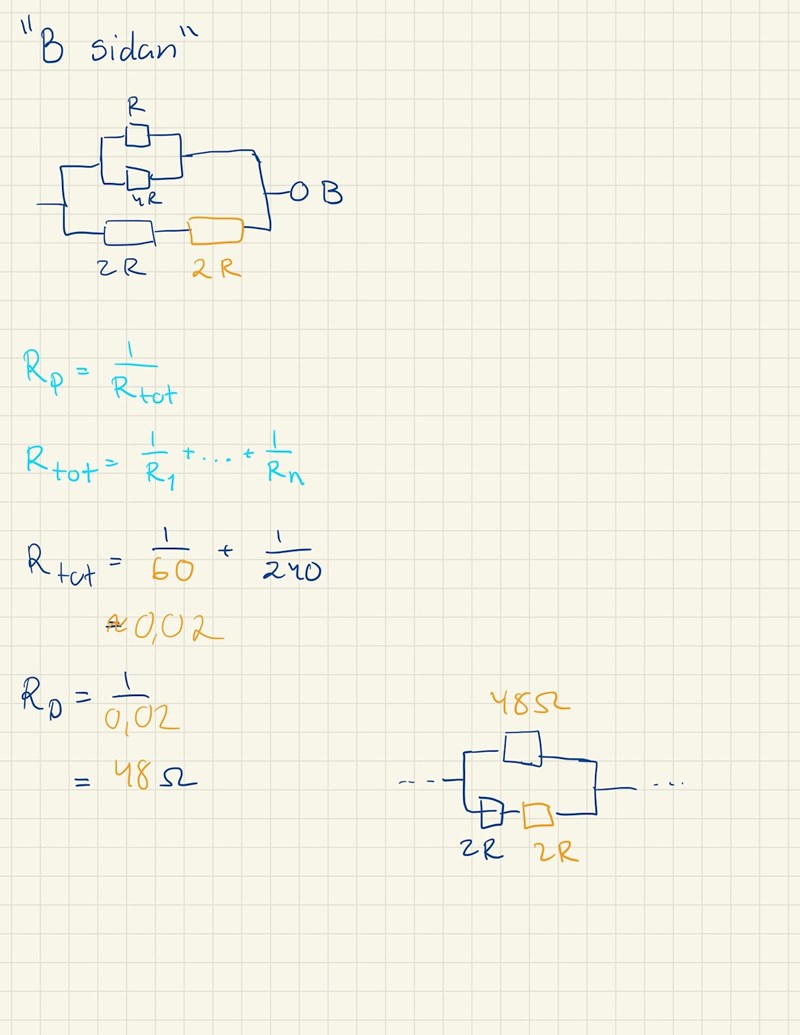 "B sidan"
R
4R
B
2R 2R
Rp = 1/Rtot
Rtot = 1/R1 + ... + 1/Rn
Rtot = 1/60 + 1/240
≈ 0,02
RD = 1/0,02
= 48 Ω
48Ω
2R 2R